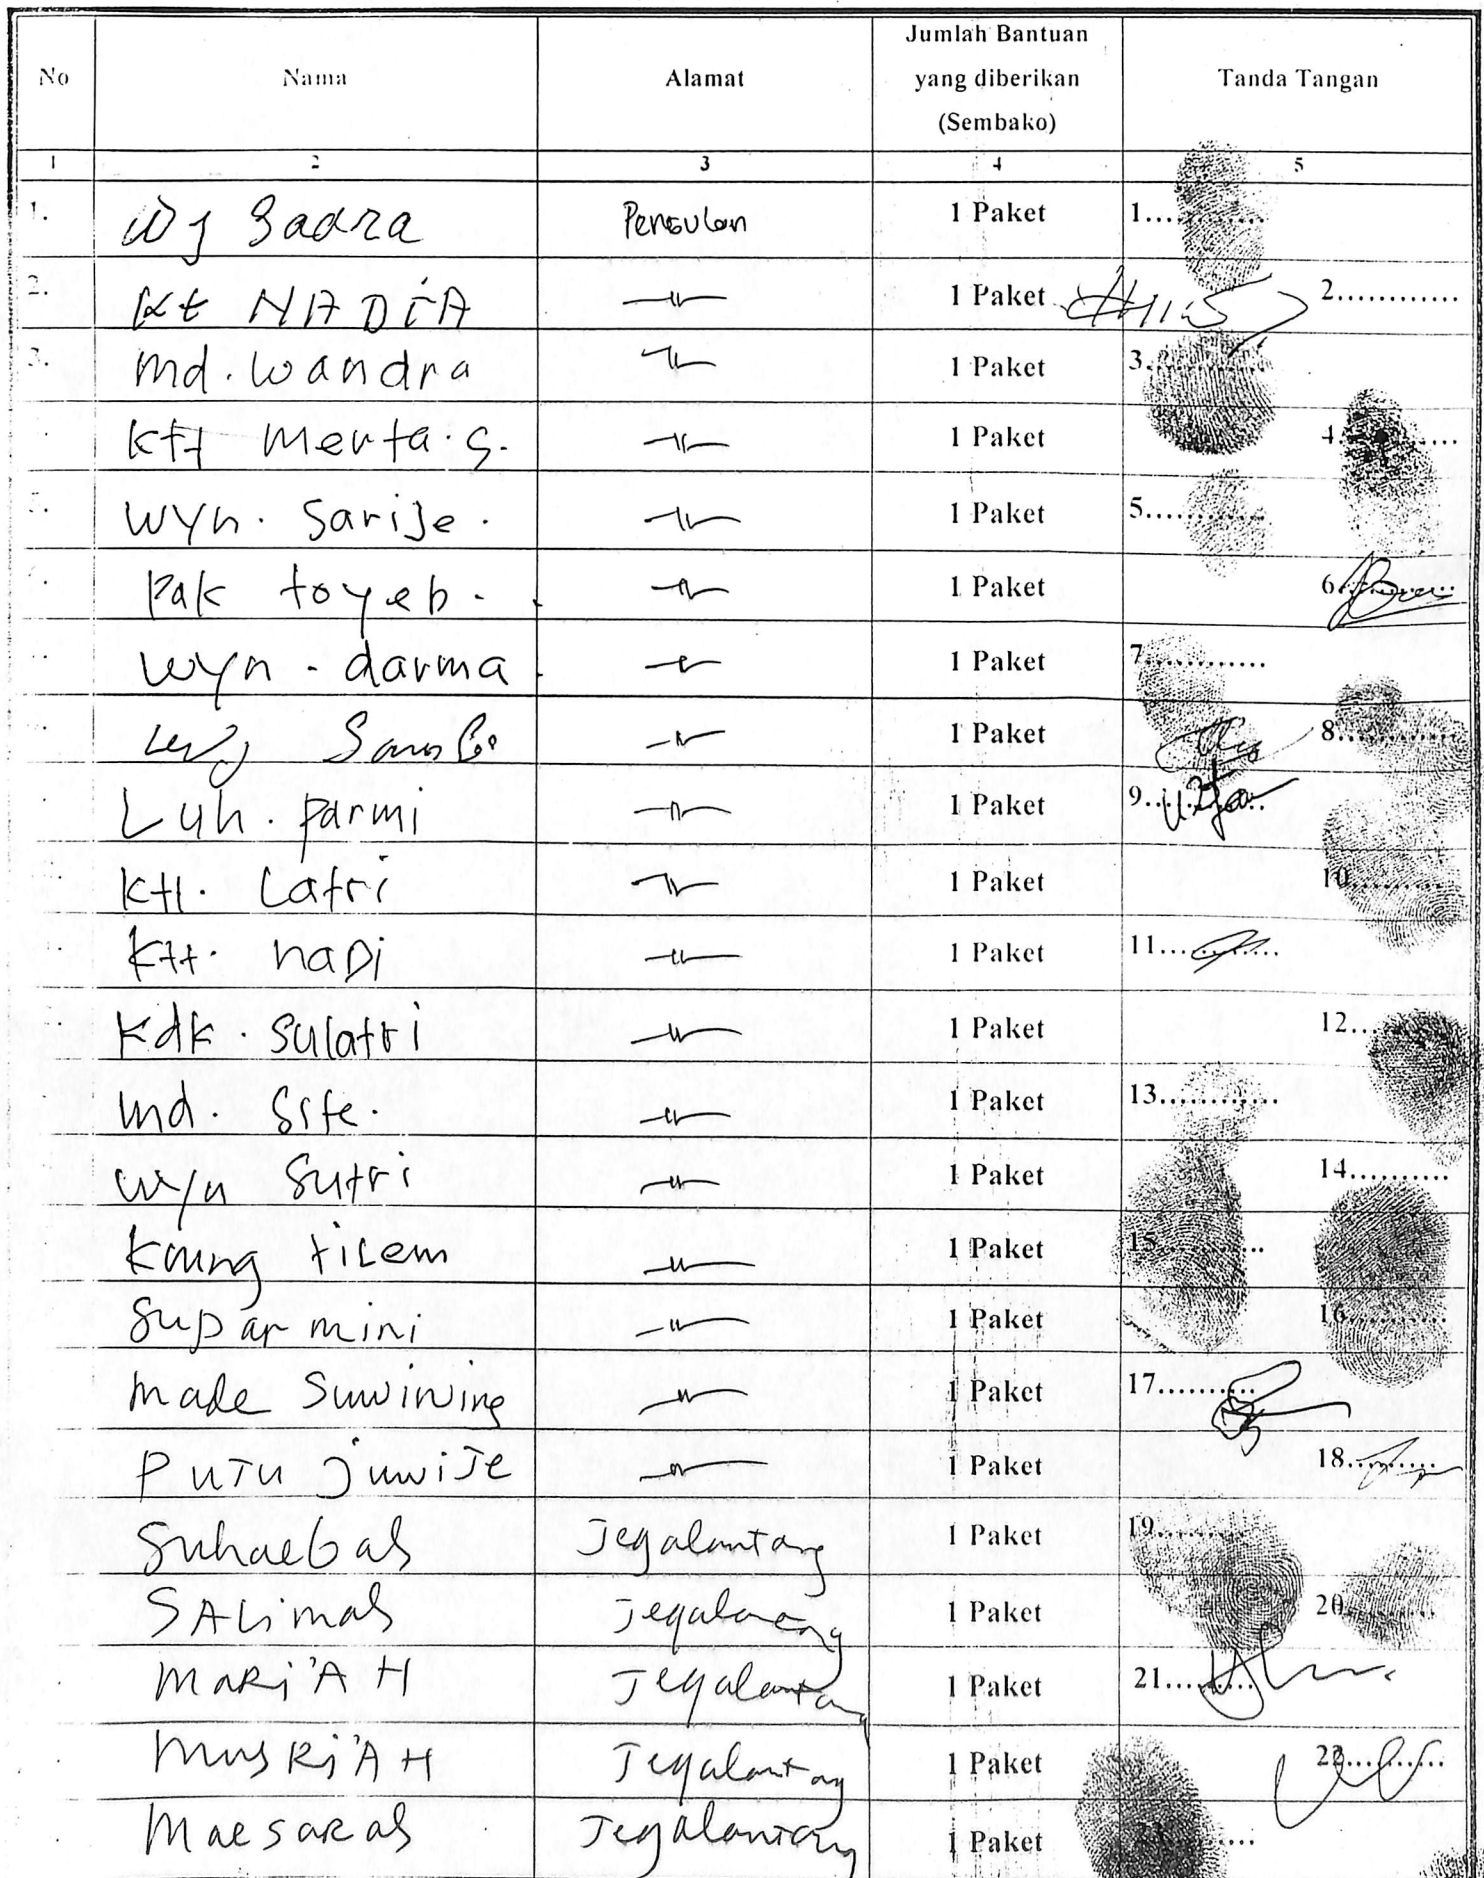 No Nama Alamat Jumlah Bantuan yang diberikan (Sembako) Tanda Tangan
1 2 3 4 5
1. Wy Sadra Pengulon 1 Paket 1............
2. Kt NADIA —〃— 1 Paket 2............
3. Md. Wandra —〃— 1 Paket 3............
Ktt Merta. S. —〃— 1 Paket 4............
5. Wyn. Sarije. —〃— 1 Paket 5............
Pak toyeb. —〃— 1 Paket 6............
wyn. darma —〃— 1 Paket 7............
1 Paket 8............
Luh. Parmi —〃— 1 Paket 9............
Ktt. Latri —〃— 1 Paket 10............
Ktt. naDi —〃— 1 Paket 11............
Kdk. Sulatri —〃— 1 Paket 12............
Md. Site. —〃— 1 Paket 13............
wyn Sutri —〃— 1 Paket 14............
tilem —〃— 1 Paket 15............
Suparmini —〃— 1 Paket 16............
made Suwining —〃— 1 Paket 17............
PUTU juwiJe —〃— 1 Paket 18............
Suhaebah Tegalantang 1 Paket 19............
SALimah 1 Paket 20............
MARi'AH Tegalantang 1 Paket 21............
MusRi'AH Tegalantang 1 Paket 22............
MaesaRah Tegalantang 1 Paket 23............